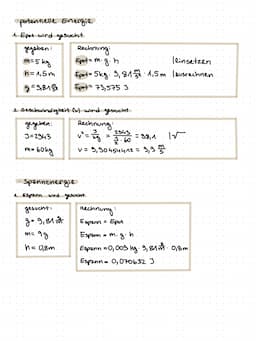 potentielle Energie
1. Epot wird gesucht.
gegeben:
m = 5 kg
h = 1,5 m
g = 9,81
Rechnung:
Epot = m · g · h |einsetzen
Epot = 5kg · 9,81 · 1,5 m |ausrechnen
Epot = 73,575 J
2. Geschwindigkeit (v) wird gesucht.
gegeben:
J = 2943
m = 60kg
Rechnung:
v = 9,9 m/s
Spannenergie
1. Espann wird gesucht.
gesucht:
g = 9,81
m = 9g
h = 0,8m
Rechnung:
Espann = Epot
Espann = m · g · h
Espann = 0,009 kg · 9,81 · 0,8m
Espann = 0,070632 J